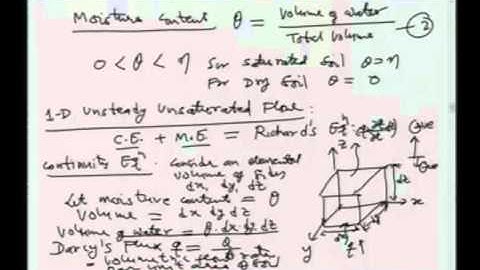 Moisture Content θ = Volume of water / Total Volume — 2
0 < θ < η for saturated soil θ = η
For Dry Soil θ = 0
1-D Unsteady Unsaturated Flow:
C.E. + M.E = Richard's Eqⁿ
Continuity Eqⁿ: Consider an elemental
volume of
dx, dy, dz
Let moisture content = θ
Volume = dx dy dz
Volume of water = θ. dx dy dz
Darcy's Flux q = Q
= volumetric
per unit area of soil
z
+ve
-ve
dz
x
dy
y
q